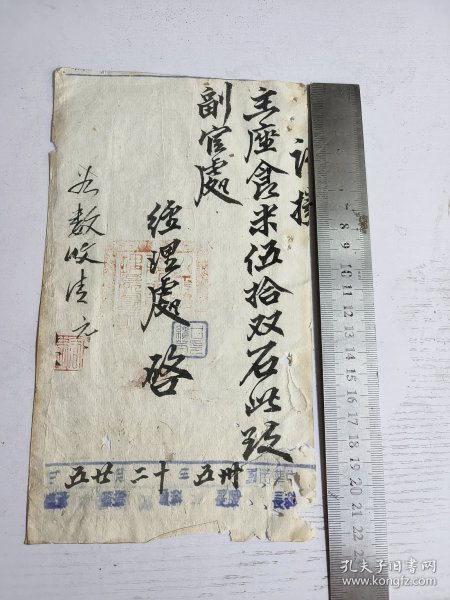 請撥
主座食米伍拾双石此致
副官處
經理處 啓
數收清
卅五 十二 廿五
8
9
10
11
12
13
14
15
16
17
18
19
20
21
22
孔夫子旧书网
www.kongfz.com